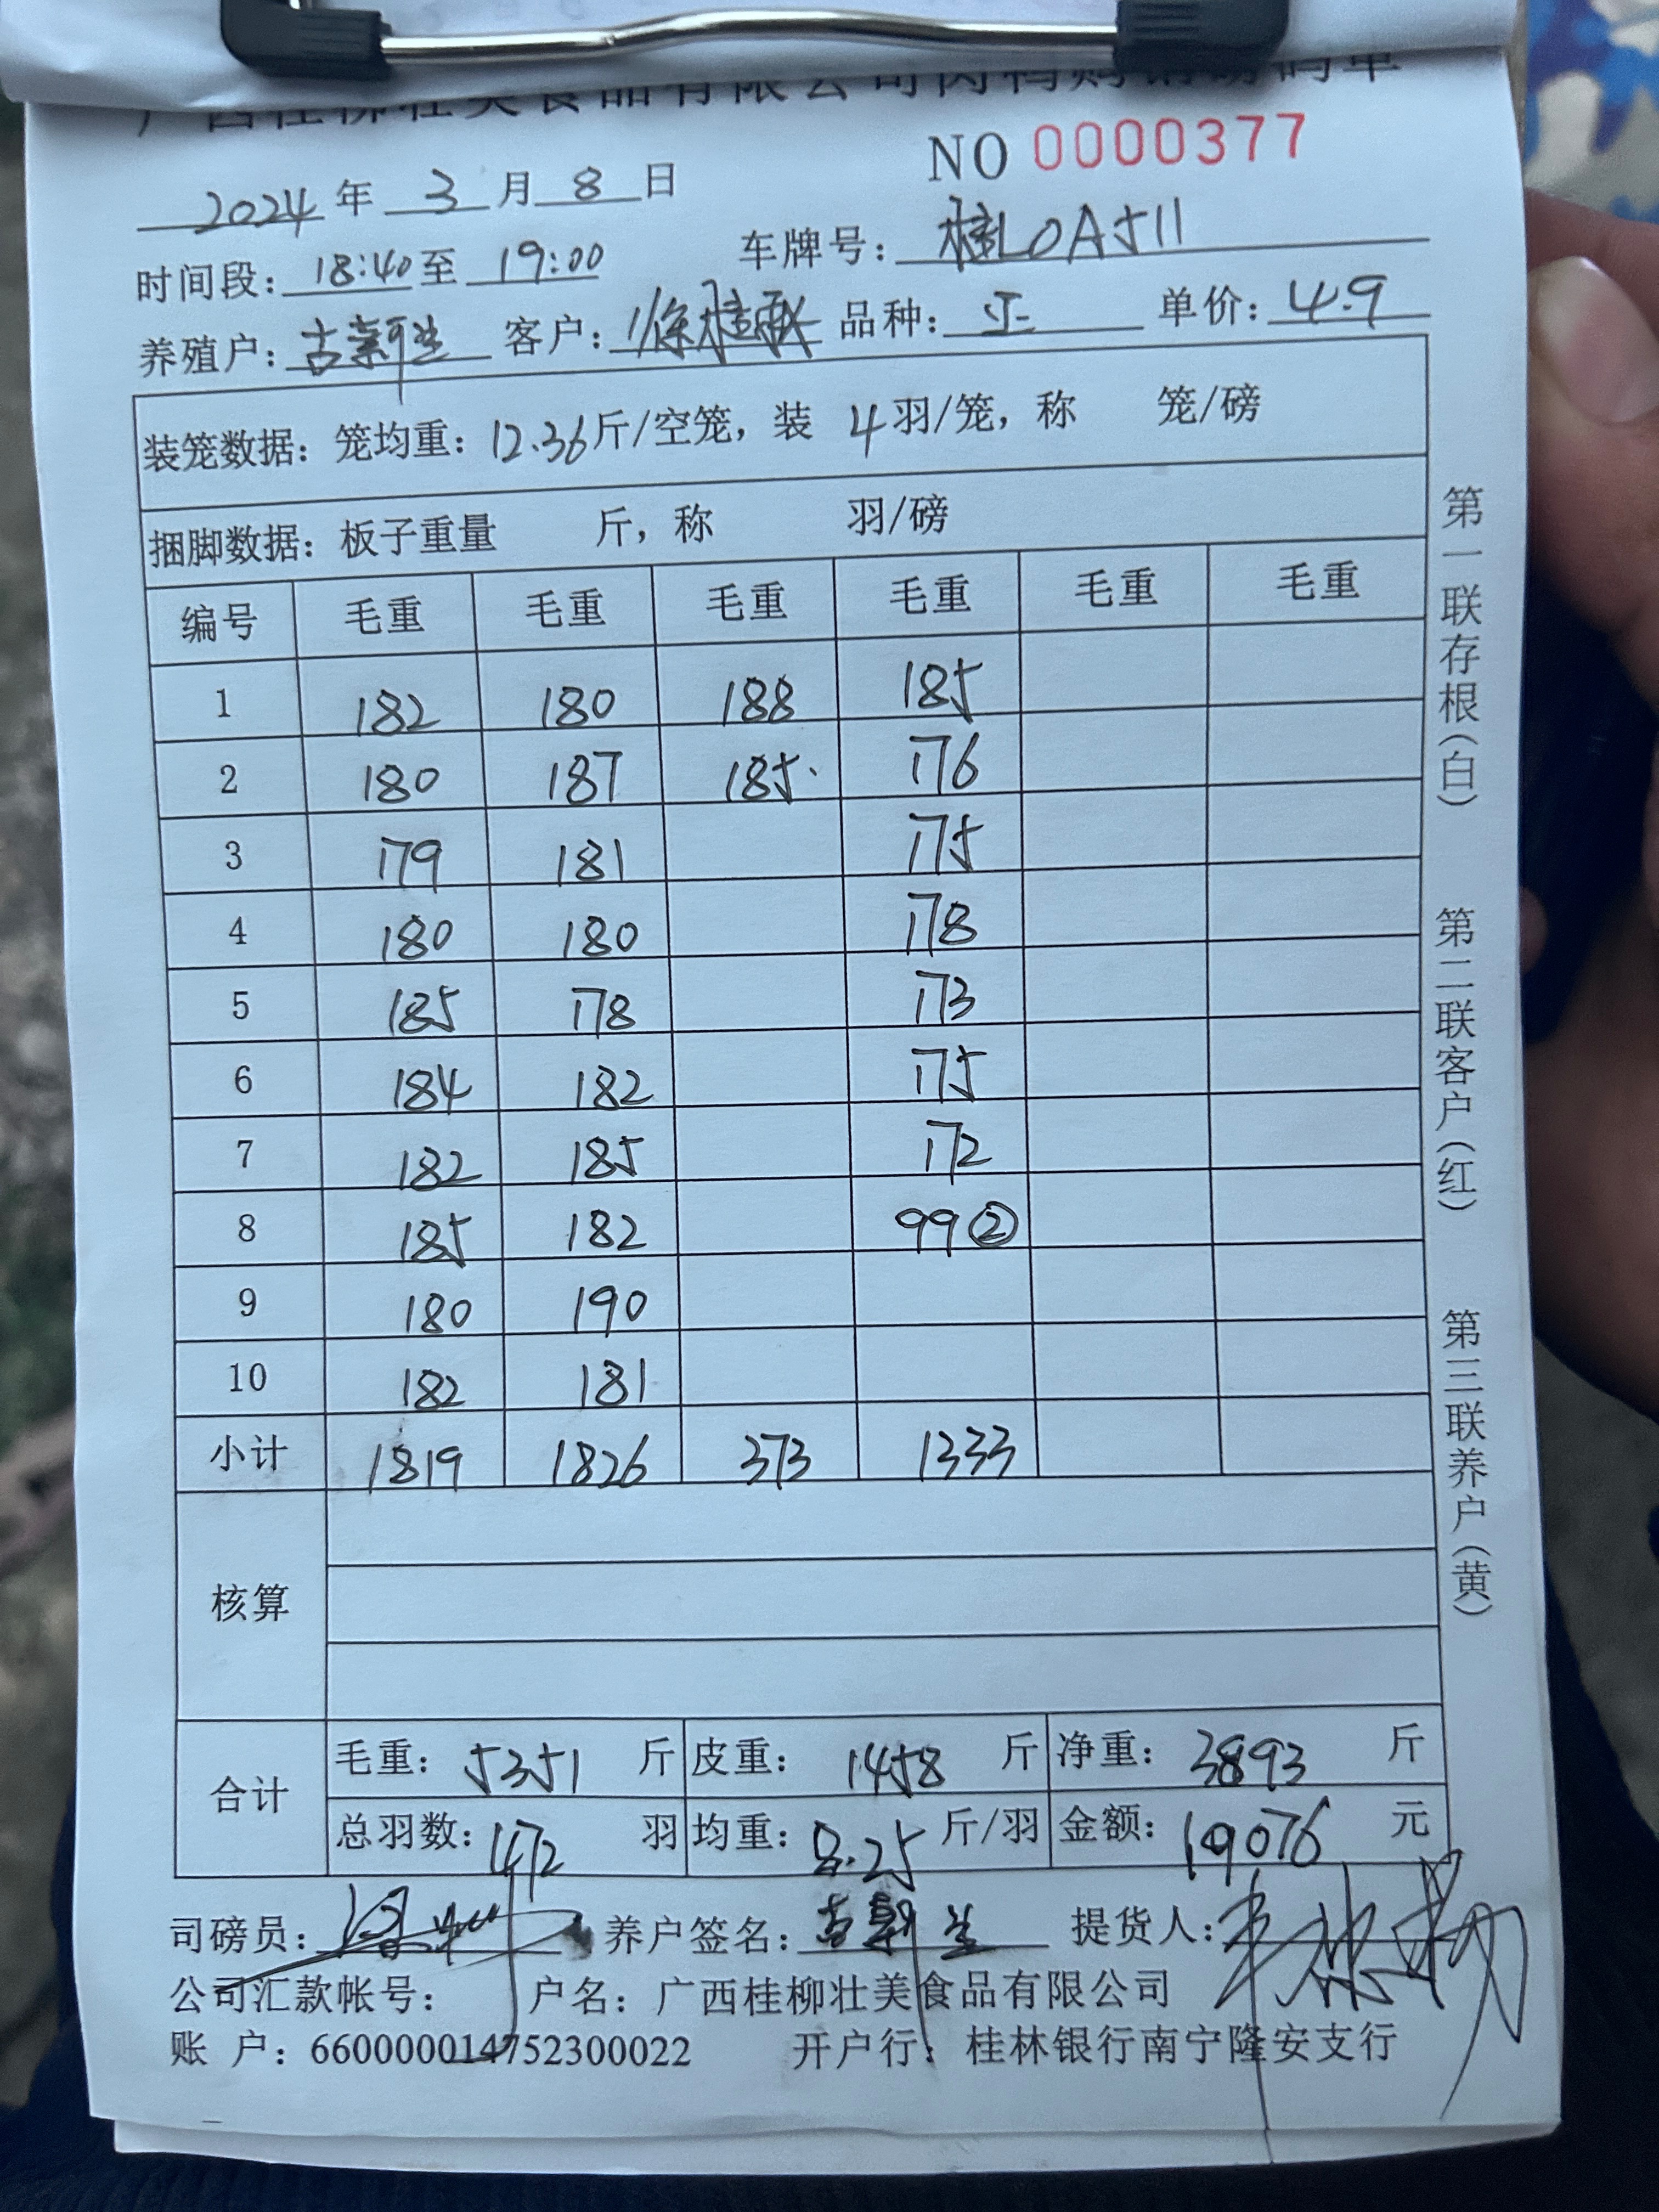 广西桂柳壮美食品有限公司肉鸭购销磅码单
NO 0000377
2024 年 3 月 8 日
时间段: 18:40 至 19:00 车牌号: 桂LOA511
养殖户: 客户: 品种: 正 单价: 4.9
装笼数据: 笼均重: 12.36斤/空笼, 装 4羽/笼, 称 笼/磅
捆脚数据: 板子重量 斤, 称 羽/磅
编号 毛重 毛重 毛重 毛重 毛重 毛重
1 182 180 188 185
2 180 187 185. 176
3 179 181 175
4 180 180 178
5 185 178 173
6 184 182 175
7 182 185 172
8 185 182 99②
9 180 190
10 182 181
小计 1819 1826 373 1333
核算
合计 毛重: 5351 斤 皮重: 1458 斤 净重: 3893 斤
总羽数: 472 羽 均重: 8.25 斤/羽 金额: 19076 元
司磅员: 养户签名: 提货人:
公司汇款帐号: 户名: 广西桂柳壮美食品有限公司
账 户: 660000014752300022 开户行: 桂林银行南宁隆安支行
第一联存根(白) 第二联客户(红) 第三联养户(黄)